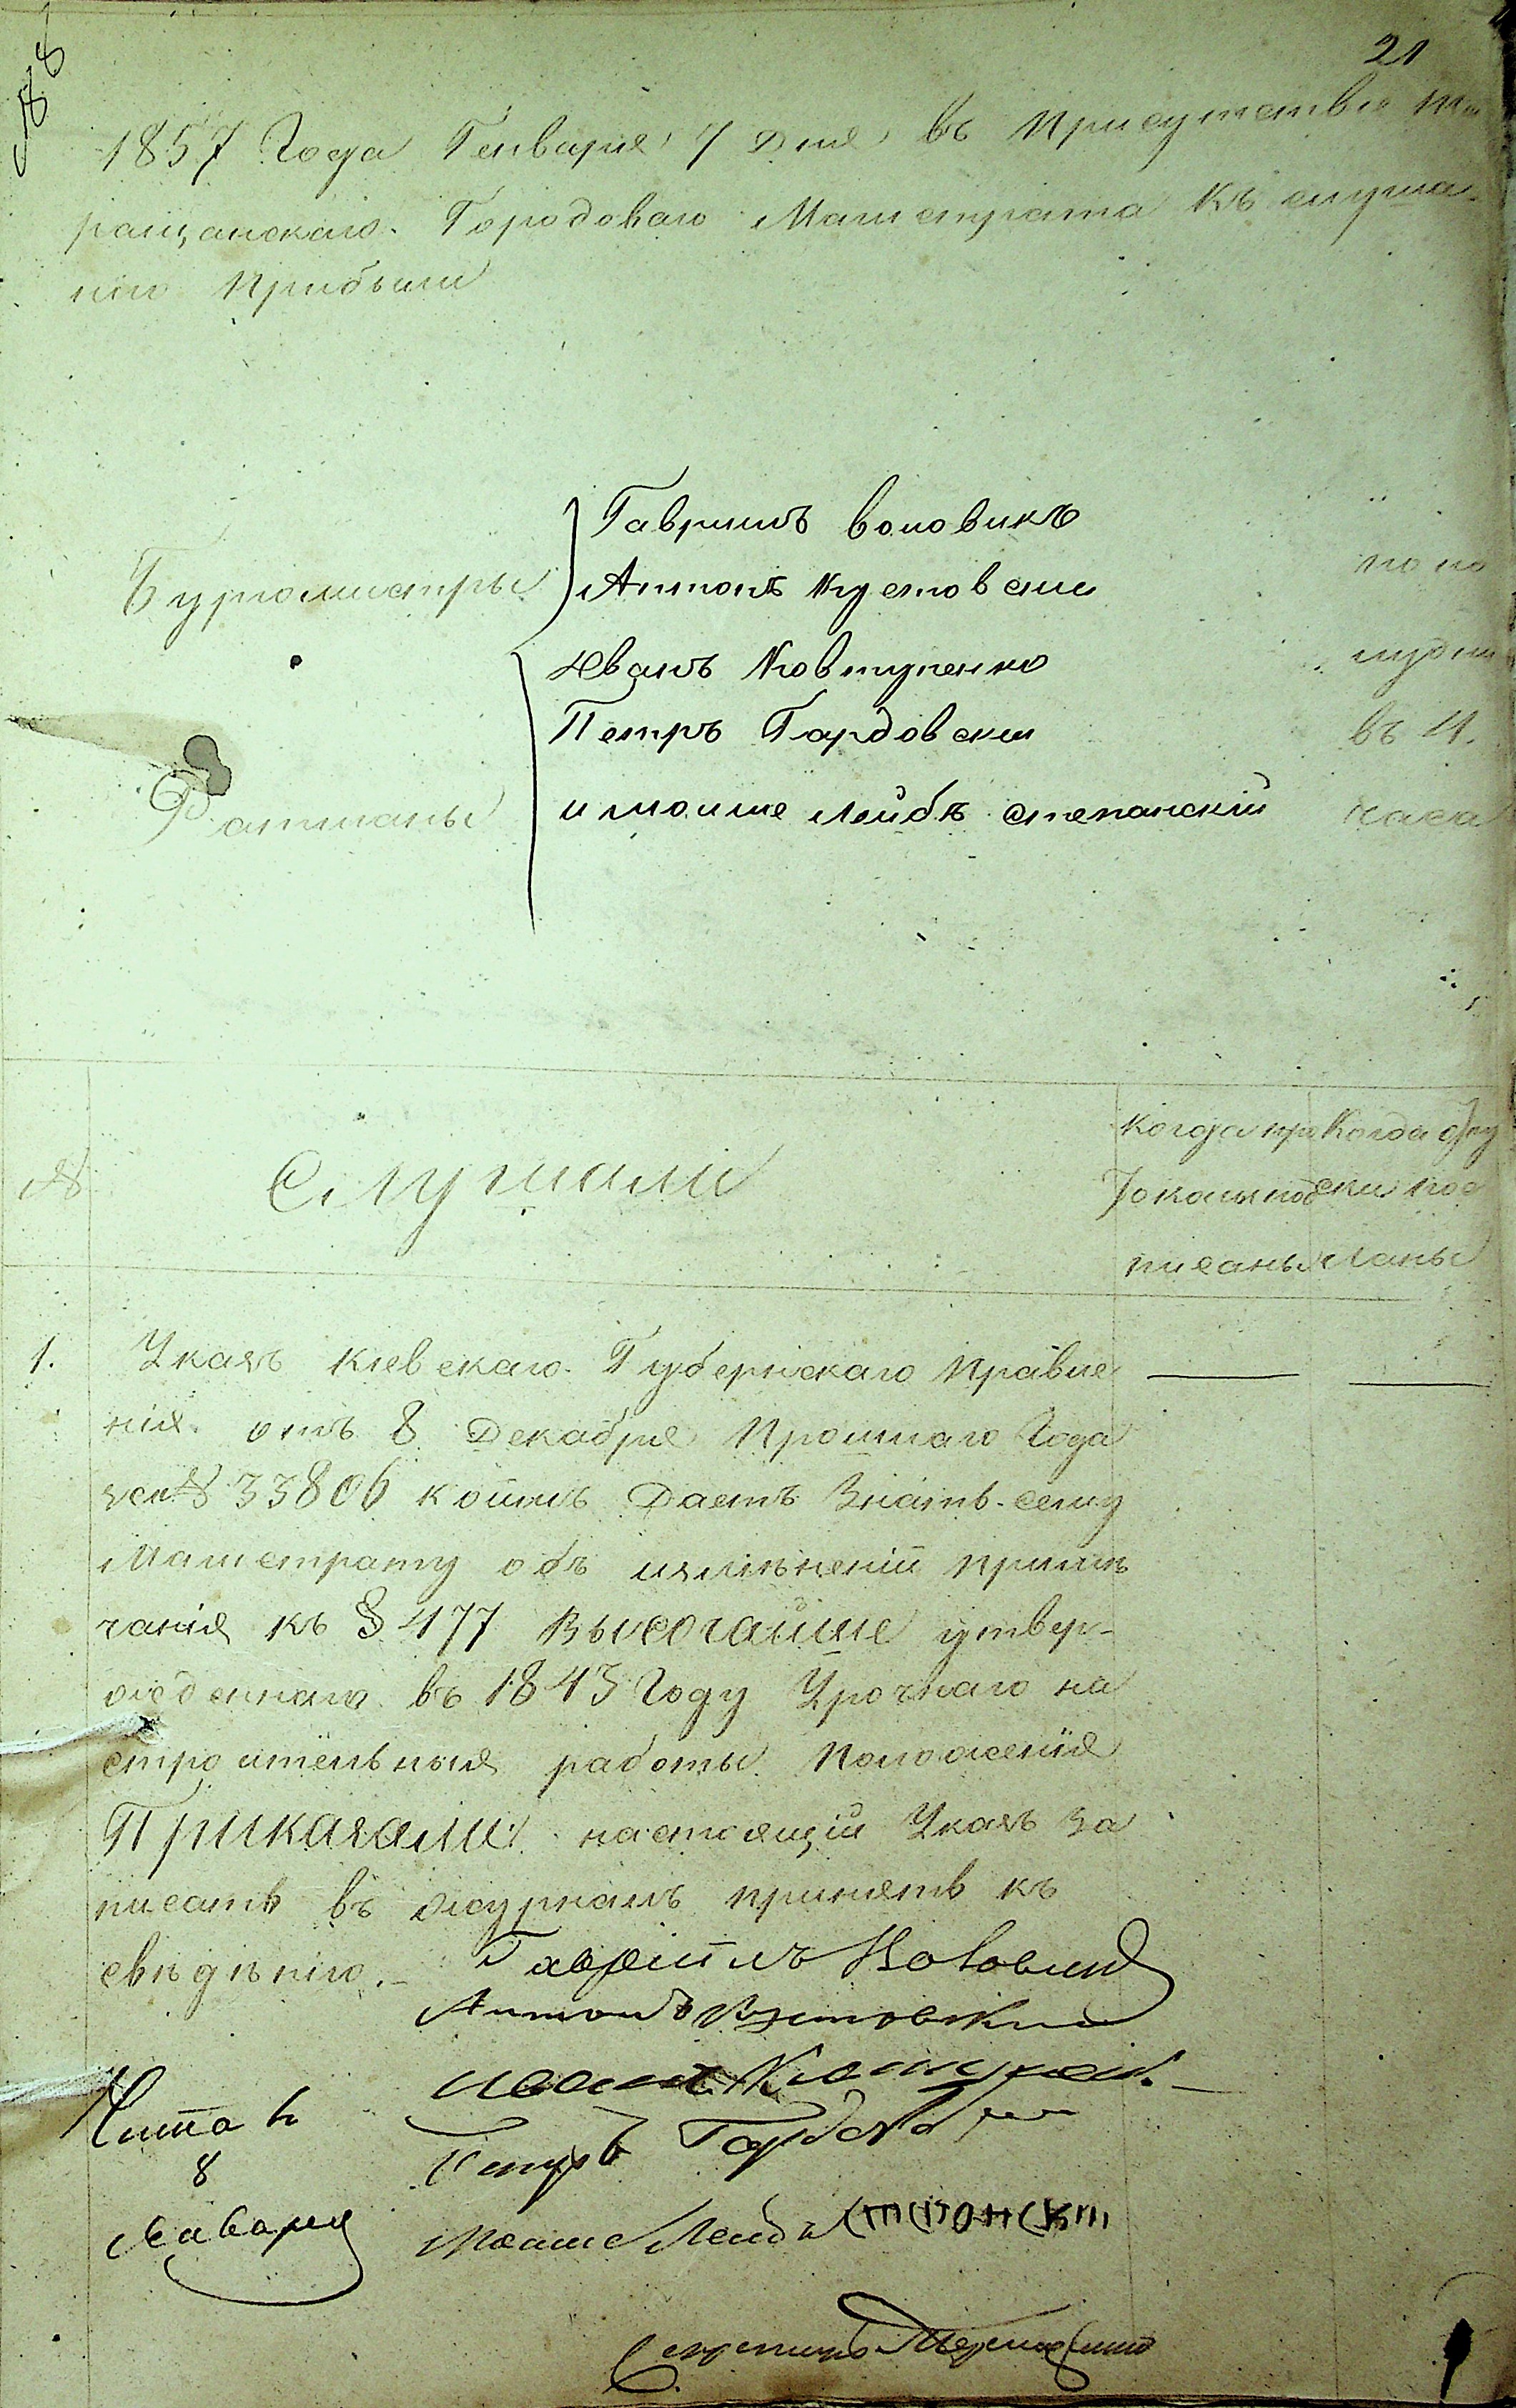 21
№ 8
1857 Года Генваря 7 дня въ Присутствіе Та
ращанскаго Городоваго Магистрата къ слуша
нію Прибыли
Бургомистры
Гаврiилъ Воловикъ
Антонъ Кустовскiй
Иванъ Ковтуненко
Петръ Гардовскiй
Ратманы
и Моише Лейбъ Степанскій
по по
лудни
въ 4.
часа
№
Слушали
Когда про
токолы под
писаны
Когда от
пу
ски пос
ланы
1. Указъ Кіевскаго Губернскаго Правле
нія отъ 8 Декабря Прошлаго Года
за № 33806 коимъ Даетъ Знать сему
Магистрату объ измѣненіи примѣ
чанія къ § 477 Высочайше утвер-
жденнаго въ 1843 Году Урочнаго на
строительныя работы Положенія
Приказали: настоящій Указъ за
писать въ журналъ принять къ
свѣдѣнію.
Гаврiилъ Воловикъ
Антонъ Кустовскiй
Иванъ Ковтунен.
Петръ Гардов
Моаше Лейбъ Степонскiй
Читалъ
8
Января
Секретарь